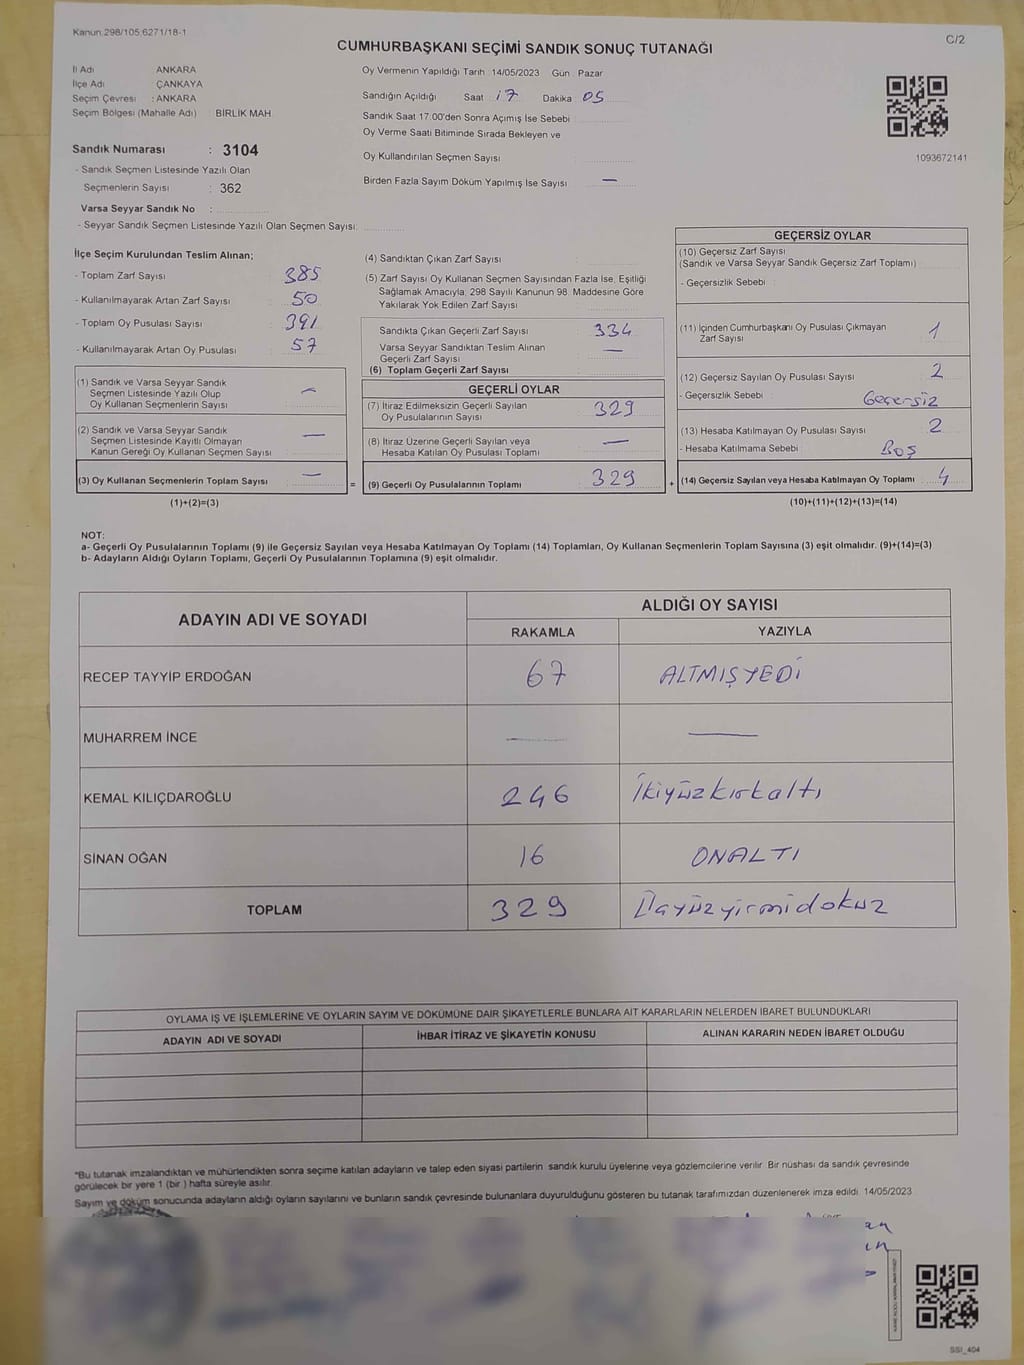 Kanun.298/105;6271/18-1
C/2
CUMHURBAŞKANI SEÇİMİ SANDIK SONUÇ TUTANAĞI
İl Adı ANKARA
İlçe Adı ÇANKAYA
Seçim Çevresi : ANKARA
Seçim Bölgesi (Mahalle Adı) BİRLİK MAH
Sandık Numarası : 3104
- Sandık Seçmen Listesinde Yazılı Olan
Seçmenlerin Sayısı : 362
Varsa Seyyar Sandık No :
- Seyyar Sandık Seçmen Listesinde Yazılı Olan Seçmen Sayısı:
Oy Vermenin Yapıldığı Tarih 14/05/2023 Gün Pazar
Sandığın Açıldığı Saat 17 Dakika 05
Sandık Saat 17:00'den Sonra Açımış İse Sebebi
Oy Verme Saati Bitiminde Sırada Bekleyen ve
Oy Kullandırılan Seçmen Sayısı
Birden Fazla Sayım Döküm Yapılmış İse Sayısı —
1093672141
İlçe Seçim Kurulundan Teslim Alınan;
- Toplam Zarf Sayısı 385
- Kullanılmayarak Artan Zarf Sayısı 50
- Toplam Oy Pusulası Sayısı 391
- Kullanılmayarak Artan Oy Pusulası 57
(1) Sandık ve Varsa Seyyar Sandık
Seçmen Listesinde Yazılı Olup
Oy Kullanan Seçmenlerin Sayısı —
(2) Sandık ve Varsa Seyyar Sandık
Seçmen Listesinde Kayıtlı Olmayan
Kanun Gereği Oy Kullanan Seçmen Sayısı —
(3) Oy Kullanan Seçmenlerin Toplam Sayısı —
(1)+(2)=(3)
(4) Sandıktan Çıkan Zarf Sayısı
(5) Zarf Sayısı Oy Kullanan Seçmen Sayısından Fazla İse, Eşitliği
Sağlamak Amacıyla; 298 Sayılı Kanunun 98. Maddesine Göre
Yakılarak Yok Edilen Zarf Sayısı
Sandıkta Çıkan Geçerli Zarf Sayısı 334
Varsa Seyyar Sandıktan Teslim Alınan
Geçerli Zarf Sayısı —
(6) Toplam Geçerli Zarf Sayısı
GEÇERLİ OYLAR
(7) İtiraz Edilmeksizin Geçerli Sayılan
Oy Pusulalarının Sayısı 329
(8) İtiraz Üzerine Geçerli Sayılan veya
Hesaba Katılan Oy Pusulası Toplamı —
= (9) Geçerli Oy Pusulalarının Toplamı 329
GEÇERSİZ OYLAR
(10) Geçersiz Zarf Sayısı
(Sandık ve Varsa Seyyar Sandık Geçersiz Zarf Toplamı)
- Geçersizlik Sebebi :
(11) İçinden Cumhurbaşkanı Oy Pusulası Çıkmayan
Zarf Sayısı 1
(12) Geçersiz Sayılan Oy Pusulası Sayısı 2
- Geçersizlik Sebebi : Geçersiz
(13) Hesaba Katılmayan Oy Pusulası Sayısı 2
- Hesaba Katılmama Sebebi : Boş
+ (14) Geçersiz Sayılan veya Hesaba Katılmayan Oy Toplamı 4
(10)+(11)+(12)+(13)=(14)
NOT:
a- Geçerli Oy Pusulalarının Toplamı (9) ile Geçersiz Sayılan veya Hesaba Katılmayan Oy Toplamı (14) Toplamları, Oy Kullanan Seçmenlerin Toplam Sayısına (3) eşit olmalıdır. (9)+(14)=(3)
b- Adayların Aldığı Oyların Toplamı, Geçerli Oy Pusulalarının Toplamına (9) eşit olmalıdır.
ADAYIN ADI VE SOYADI
ALDIĞI OY SAYISI
RAKAMLA YAZIYLA
RECEP TAYYİP ERDOĞAN 67 ALTMIŞYEDİ
MUHARREM İNCE — —
KEMAL KILIÇDAROĞLU 246 İkiyüzkırkaltı
SİNAN OĞAN 16 ONALTI
TOPLAM 329 Üçyüzyirmidokuz
OYLAMA İŞ VE İŞLEMLERİNE VE OYLARIN SAYIM VE DÖKÜMÜNE DAİR ŞİKAYETLERLE BUNLARA AİT KARARLARIN NELERDEN İBARET BULUNDUKLARI
ADAYIN ADI VE SOYADI İHBAR İTİRAZ VE ŞİKAYETİN KONUSU ALINAN KARARIN NEDEN İBARET OLDUĞU
*Bu tutanak imzalandıktan ve mühürlendikten sonra seçime katılan adayların ve talep eden siyasi partilerin sandık kurulu üyelerine veya gözlemcilerine verilir. Bir nüshası da sandık çevresinde
görülecek bir yere 1 (bir ) hafta süreyle asılır.
Sayım ve döküm sonucunda adayların aldığı oyların sayılarını ve bunların sandık çevresinde bulunanlara duyurulduğunu gösteren bu tutanak tarafımızdan düzenlenerek imza edildi. 14/05/2023
SSI_404